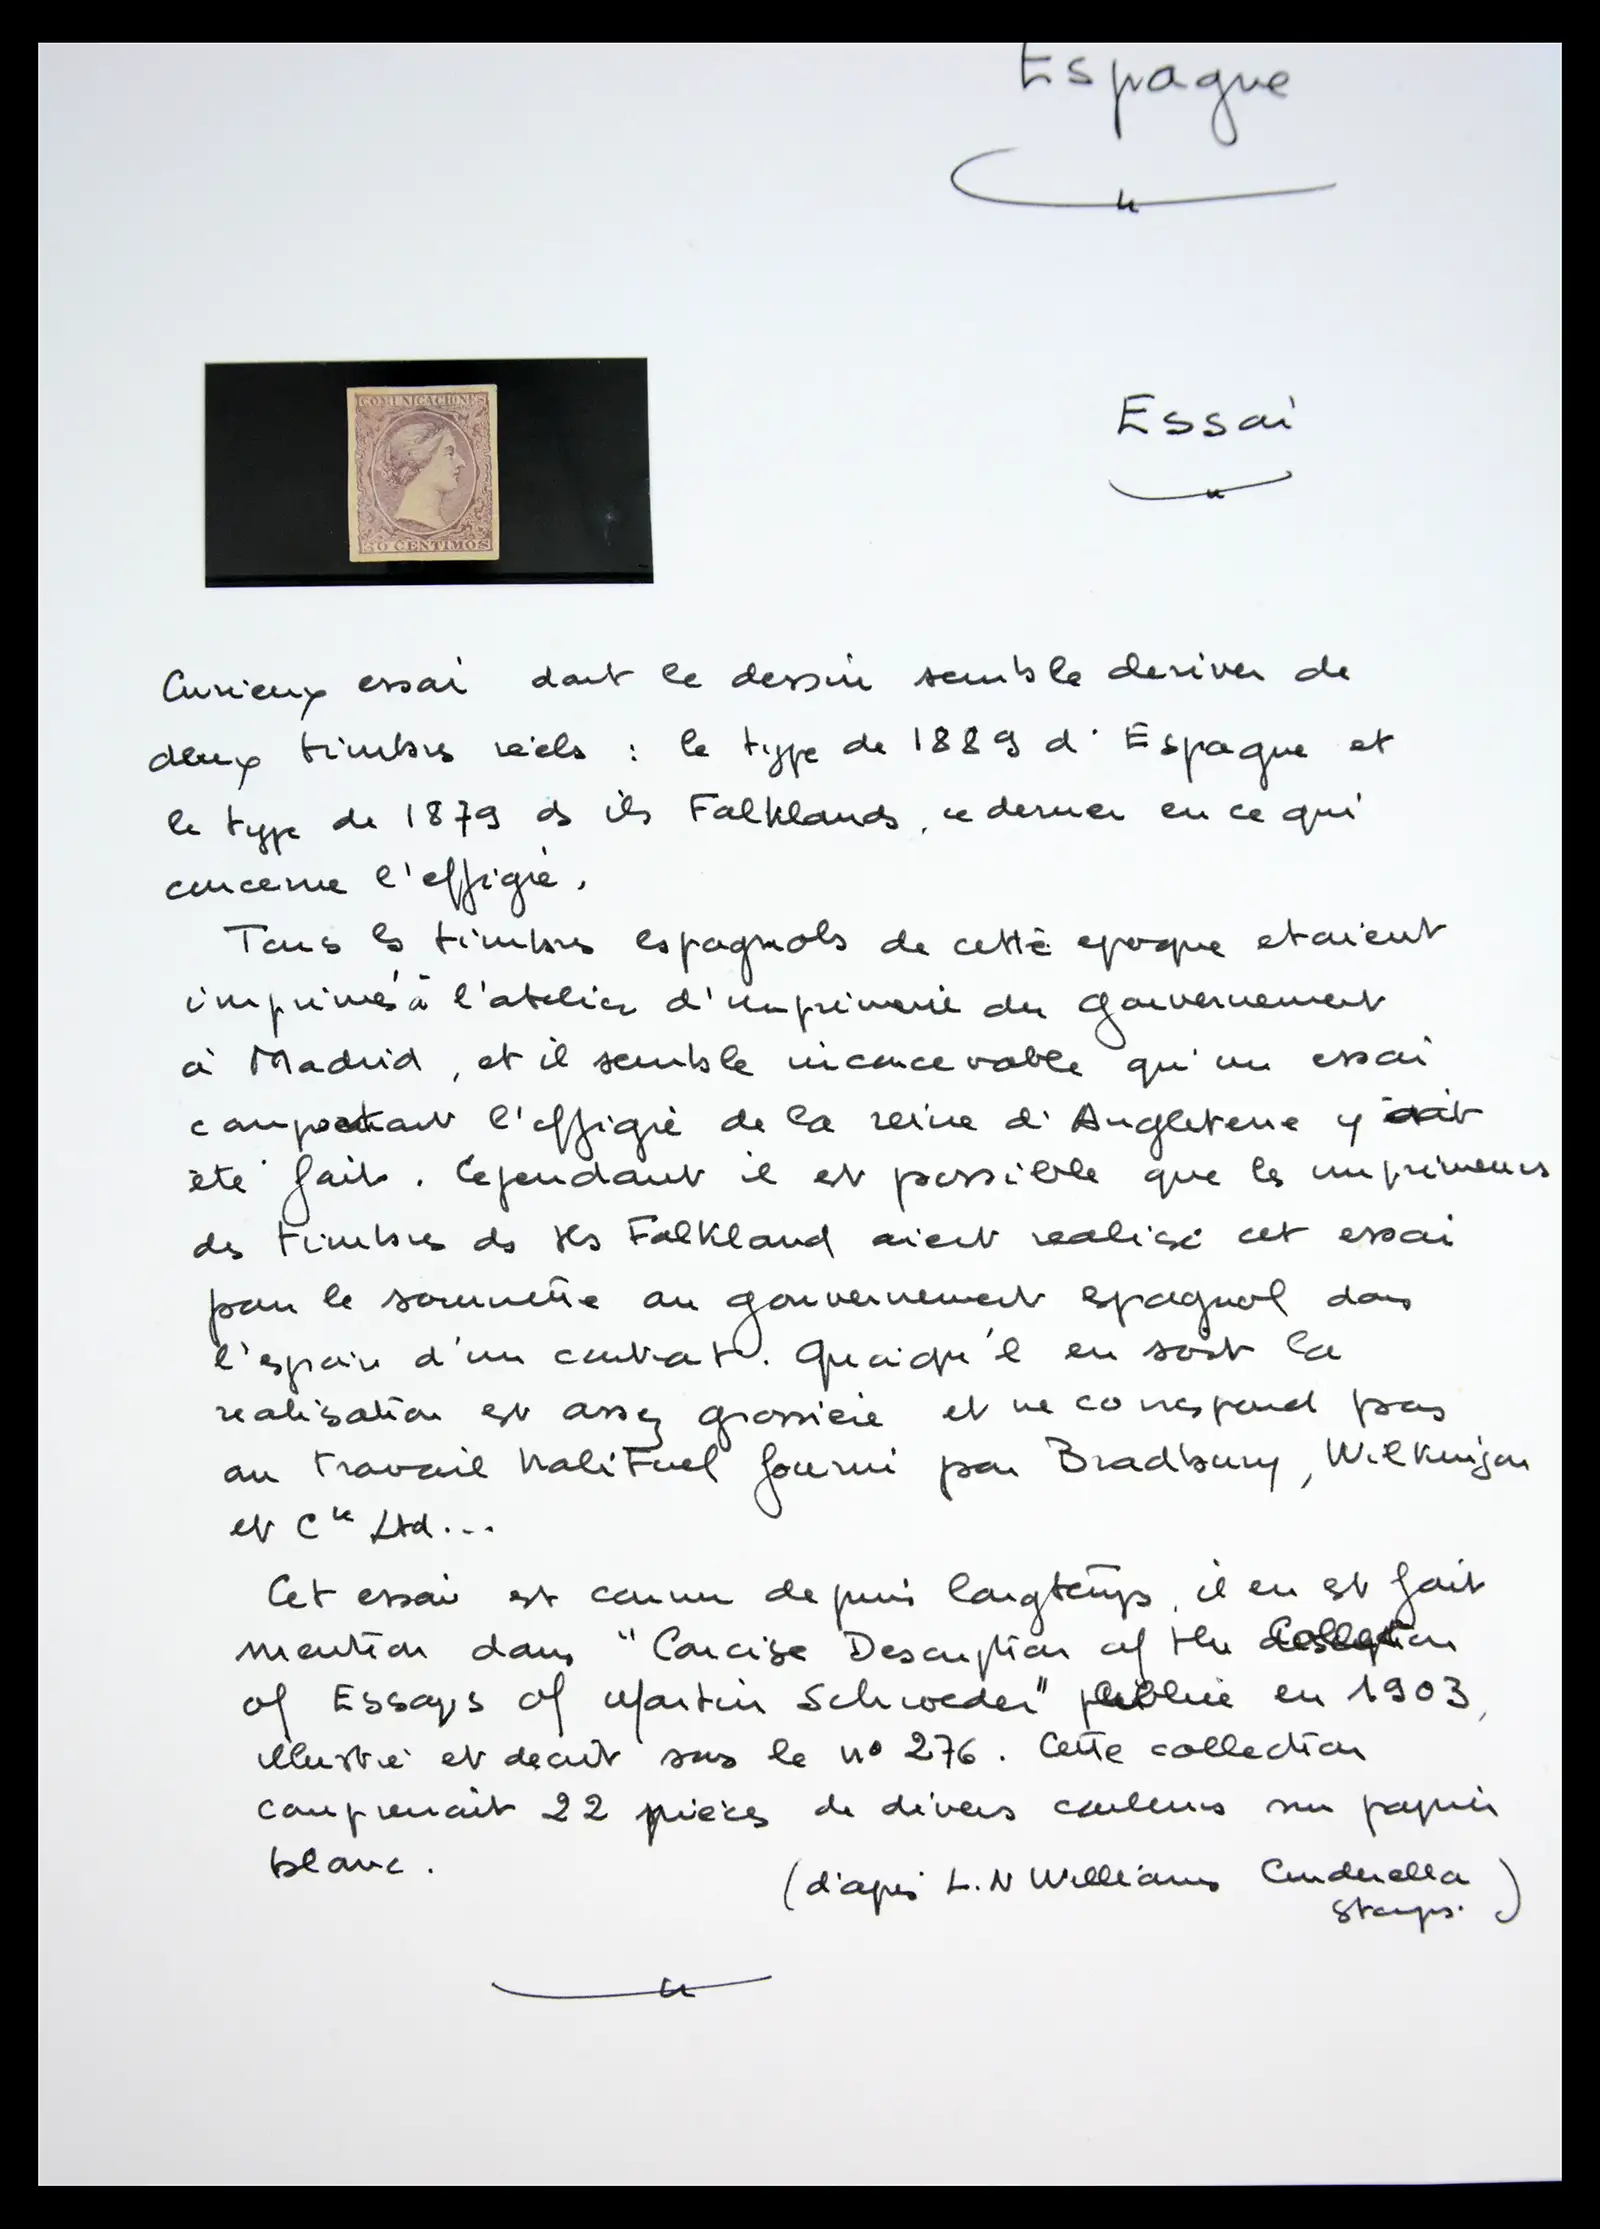 Espagne
COMUNICACIONES
50 CENTIMOS
Essai
Curieux essai dont le dessin semble deriver de
deux timbres réels : le type de 1889 d'Espagne et
le type de 1879 ds îles Falklands, ce dernier en ce qui
concerne l'effigie.
Tous ls timbres espagnols de cette epoque etaient
imprimés à l'atelier d'imprimerie du gouvernement
à Madrid, et il semble inconcevable qu'un essai
comportant l'effigie de la reine d'Angleterre y ait
été fait. Cependant il est possible que ls imprimeurs
des timbres ds Iles Falkland aient realisé cet essai
pour le soumettre au gouvernement espagnol dans
l'espoir d'un contrat. Quoiqu'il en soit la
realisation est assez grossière et ne correspond pas
au travail habituel fourni par Bradbury, Wilkinson
et Cie Ltd...
Cet essai est connu depuis longtemps, il en est fait
mention dans "Concise Description of the Collection
of Essays of Martin Schroeder" publié en 1903,
illustré et decrit sous le n° 276. Cette collection
comprenait 22 pièces de divers couleurs sur papier
blanc.
(d'après L.N Williams Cinderella
Stamps.)